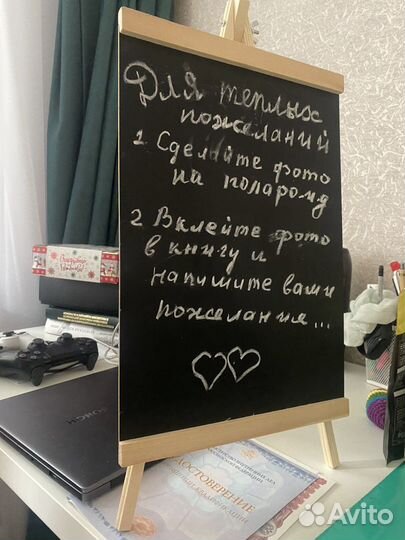 Для теплых
пожеланий
1 Сделайте фото
на полароид
2 Вклейте фото
в книгу и
напишите ваши
пожелания...
HONOR
УДОСТОВЕРЕНИЕ
Avito